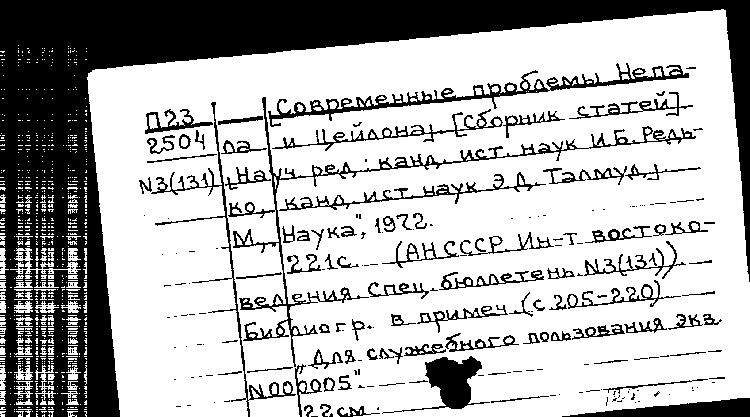 П23 [Современные проблемы Непа-
2504 ла и Цейлона]. [Сборник статей].
N3(131) [Науч. ред.: канд. ист. наук И.Б. Редь-
ко, канд. ист. наук Э.Д. Талмуд.].
М., „Наука", 1972.
221с. (АН СССР. Ин-т востоко-
ведения. Спец. бюллетень. N3(131)).
Библиогр. в примеч. (с 205-220)
„Для служебного пользования Экз.
N000005".
22см.